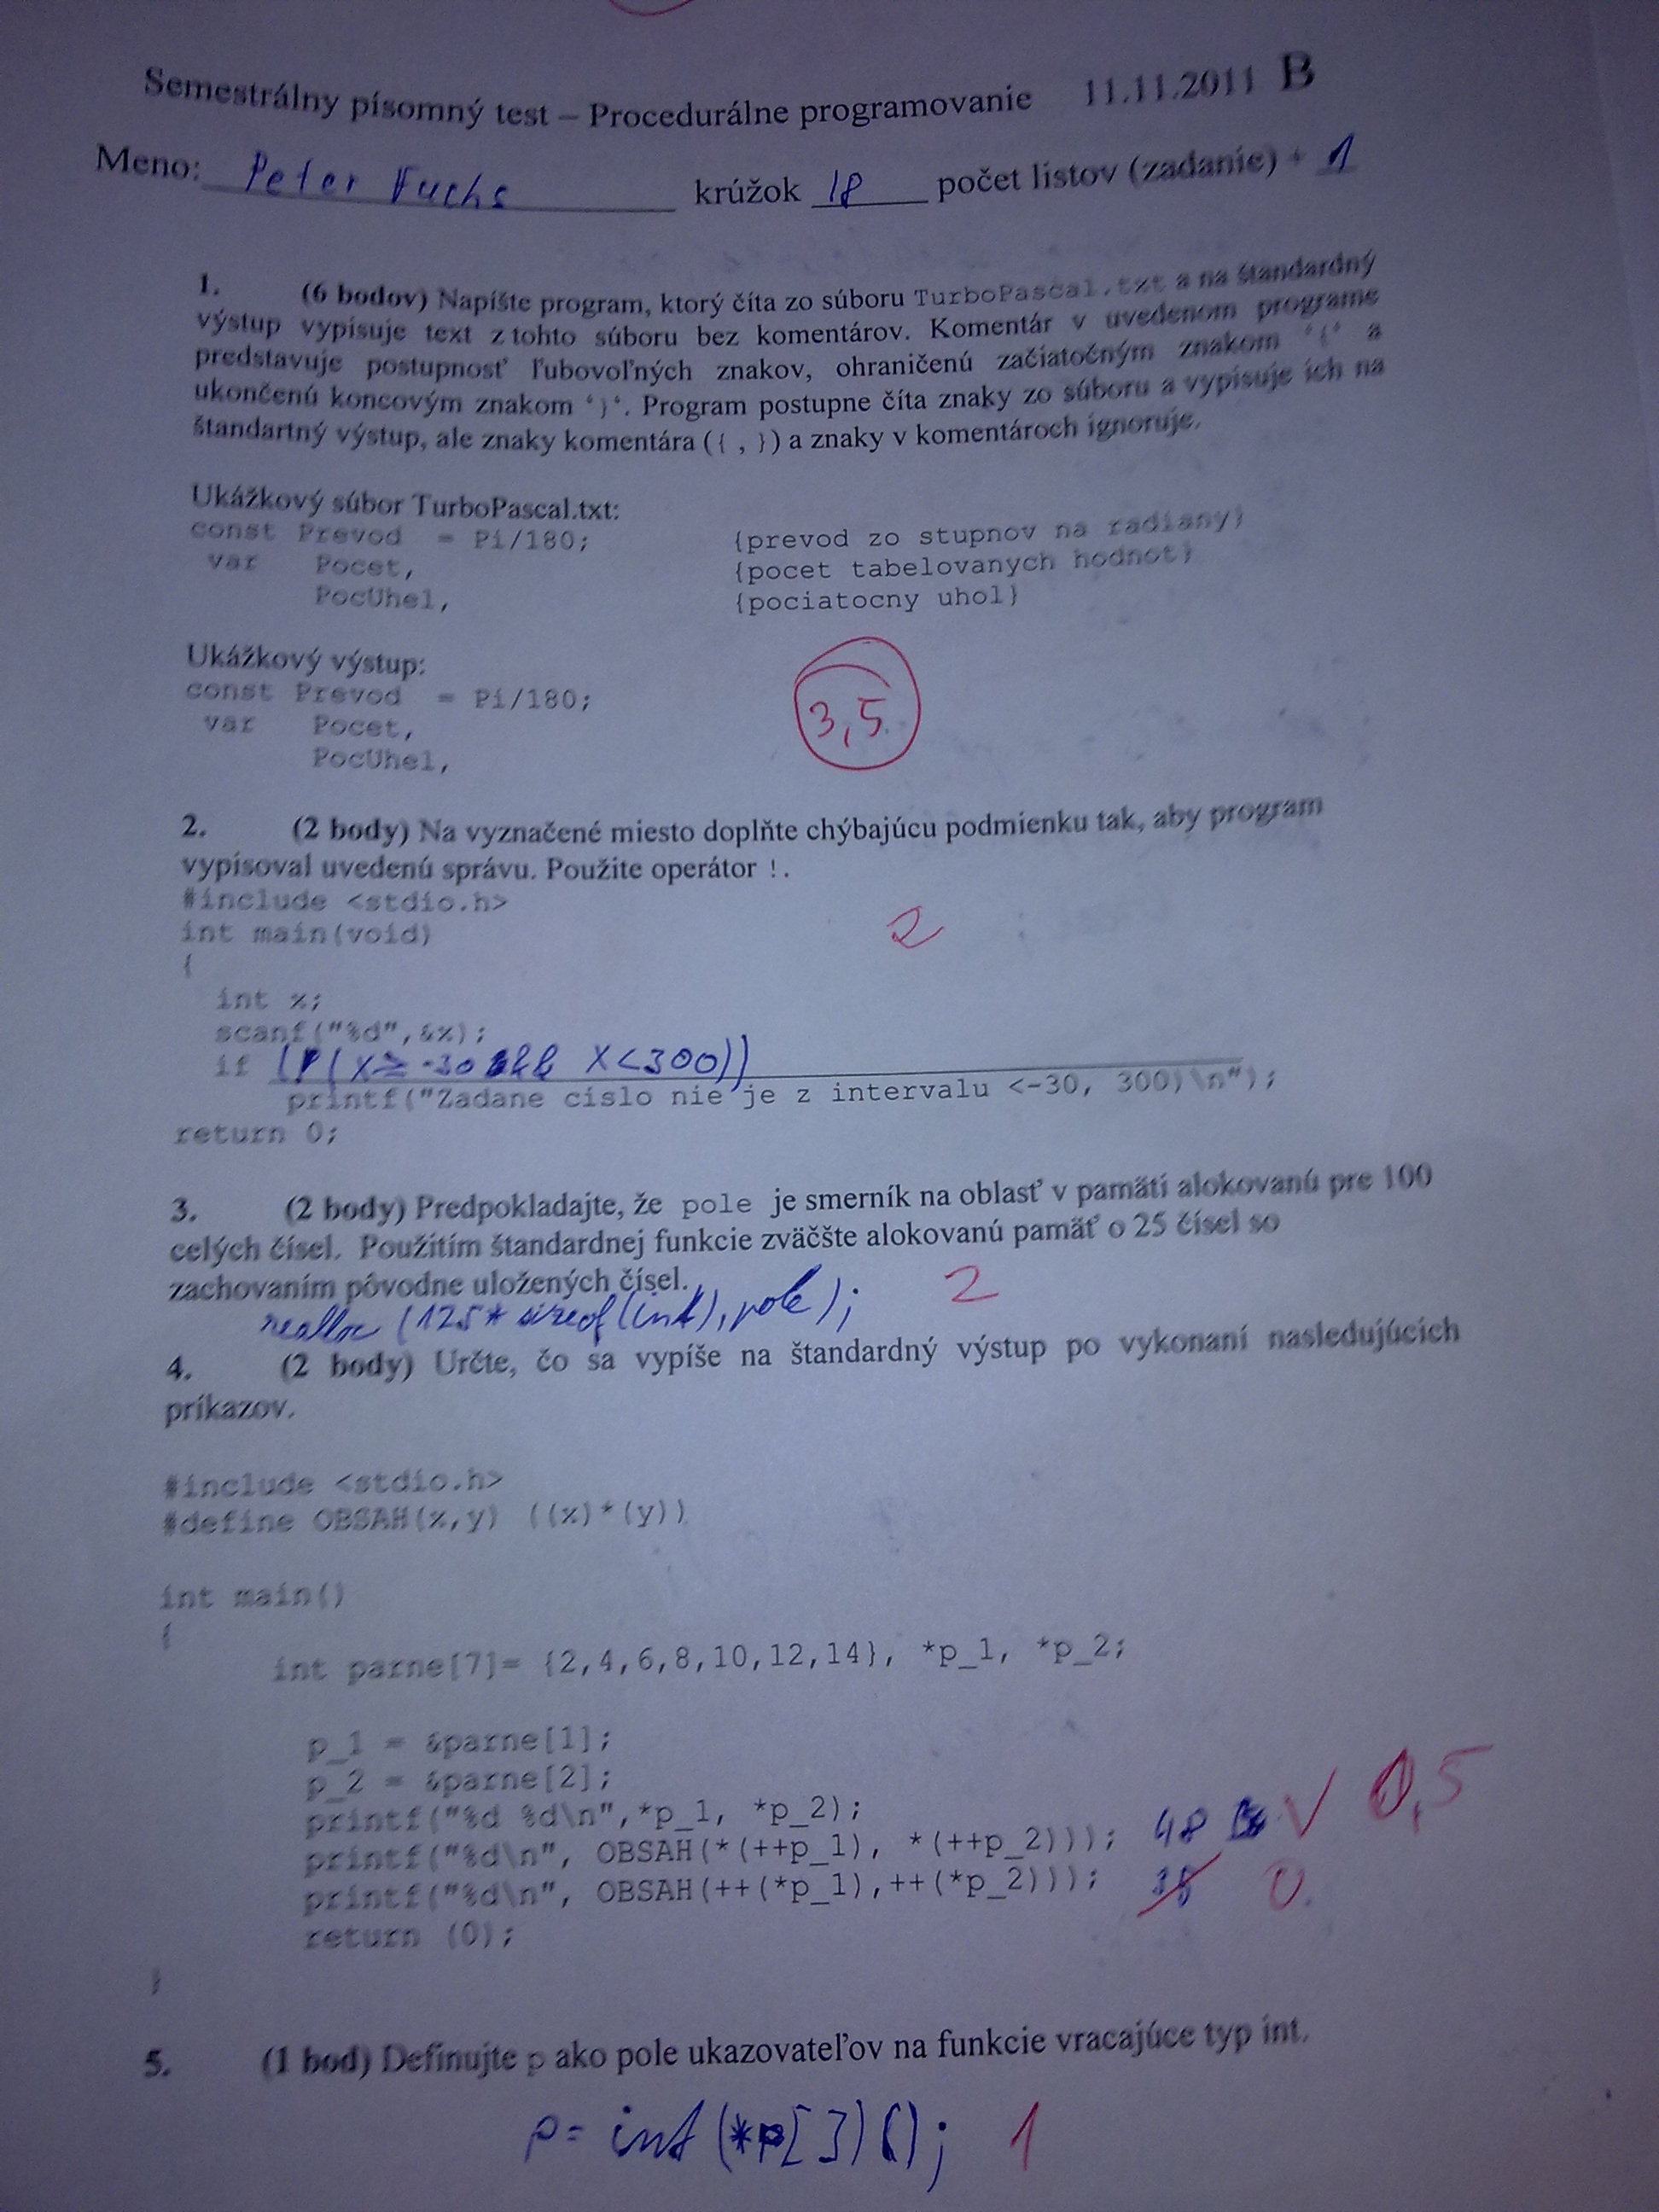 Semestrálny písomný test – Procedurálne programovanie 11.11.2011 B
Meno: Peter Fuchs krúžok 18 počet listov (zadanie) + 1
1. (6 bodov) Napíšte program, ktorý číta zo súboru TurboPascal.txt a na štandardný
výstup vypisuje text z tohto súboru bez komentárov. Komentár v uvedenom programe
predstavuje postupnosť ľubovoľných znakov, ohraničenú začiatočným znakom ‘{‘ a
ukončenú koncovým znakom ‘}‘. Program postupne číta znaky zo súboru a vypisuje ich na
štandartný výstup, ale znaky komentára ({ , }) a znaky v komentároch ignoruje.
Ukážkový súbor TurboPascal.txt:
const Prevod = Pi/180; {prevod zo stupnov na radiany}
var Pocet, {pocet tabelovanych hodnot}
PocUhel, {pociatocny uhol}
Ukážkový výstup:
const Prevod = Pi/180;
var Pocet,
PocUhel,
3,5
2. (2 body) Na vyznačené miesto doplňte chýbajúcu podmienku tak, aby program
vypisoval uvedenú správu. Použite operátor !.
#include <stdio.h>
int main(void)
2
{
int x;
scanf("%d",&x);
if (!(x≥-30 && x<300))
printf("Zadane cislo nie je z intervalu <-30, 300)\n");
return 0;
3. (2 body) Predpokladajte, že pole je smerník na oblasť v pamäti alokovanú pre 100
celých čísel. Použitím štandardnej funkcie zväčšte alokovanú pamäť o 25 čísel so
zachovaním pôvodne uložených čísel. 2
realloc (125* sizeof(int), pole);
4. (2 body) Určte, čo sa vypíše na štandardný výstup po vykonaní nasledujúcich
príkazov.
#include <stdio.h>
#define OBSAH(x,y) ((x)*(y))
int main()
{
int parne[7]= {2,4,6,8,10,12,14}, *p_1, *p_2;
p_1 = &parne[1];
p_2 = &parne[2];
printf("%d %d\n",*p_1, *p_2);
printf("%d\n", OBSAH(*(++p_1), *(++p_2))); 48 ✓ 0,5
printf("%d\n", OBSAH(++(*p_1),++(*p_2))); 0
return (0);
}
5. (1 bod) Definujte p ako pole ukazovateľov na funkcie vracajúce typ int.
p= int (*p[3)(); 1